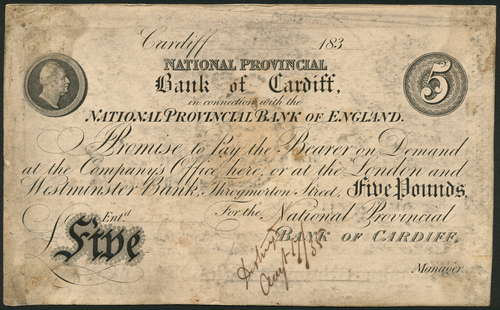 Cardiff 183
NATIONAL PROVINCIAL
5
Bank of Cardiff,
in connection with the
NATIONAL PROVINCIAL BANK OF ENGLAND.
Promise to Pay the Bearer on Demand
at the Company's Office here, or at the London and
Westminster Bank, Throgmorton Street, Five Pounds.
£ Entd For the National Provincial
Five BANK OF CARDIFF.
Manager.